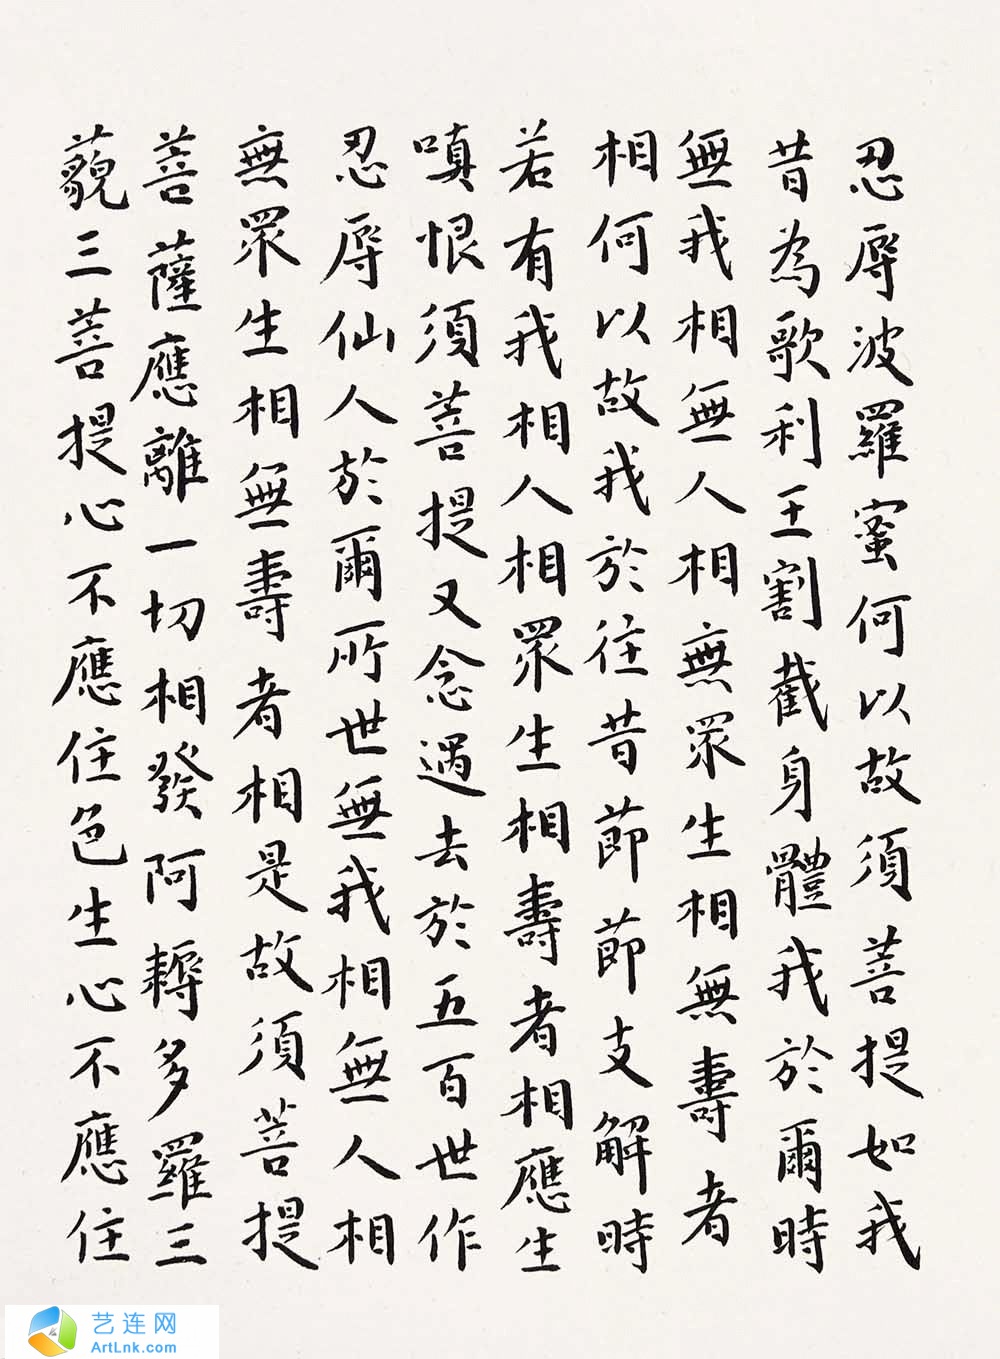 忍辱波羅蜜何以故須菩提如我
昔為歌利王割截身體我於爾時
無我相無人相無眾生相無壽者
相何以故我於往昔節節支解時
若有我相人相眾生相壽者相應生
嗔恨須菩提又念過去於五百世作
忍辱仙人於爾所世無我相無人相
無眾生相無壽者相是故須菩提
菩薩應離一切相發阿耨多羅三
藐三菩提心不應住色生心不應住
艺连网
ArtLnk.com